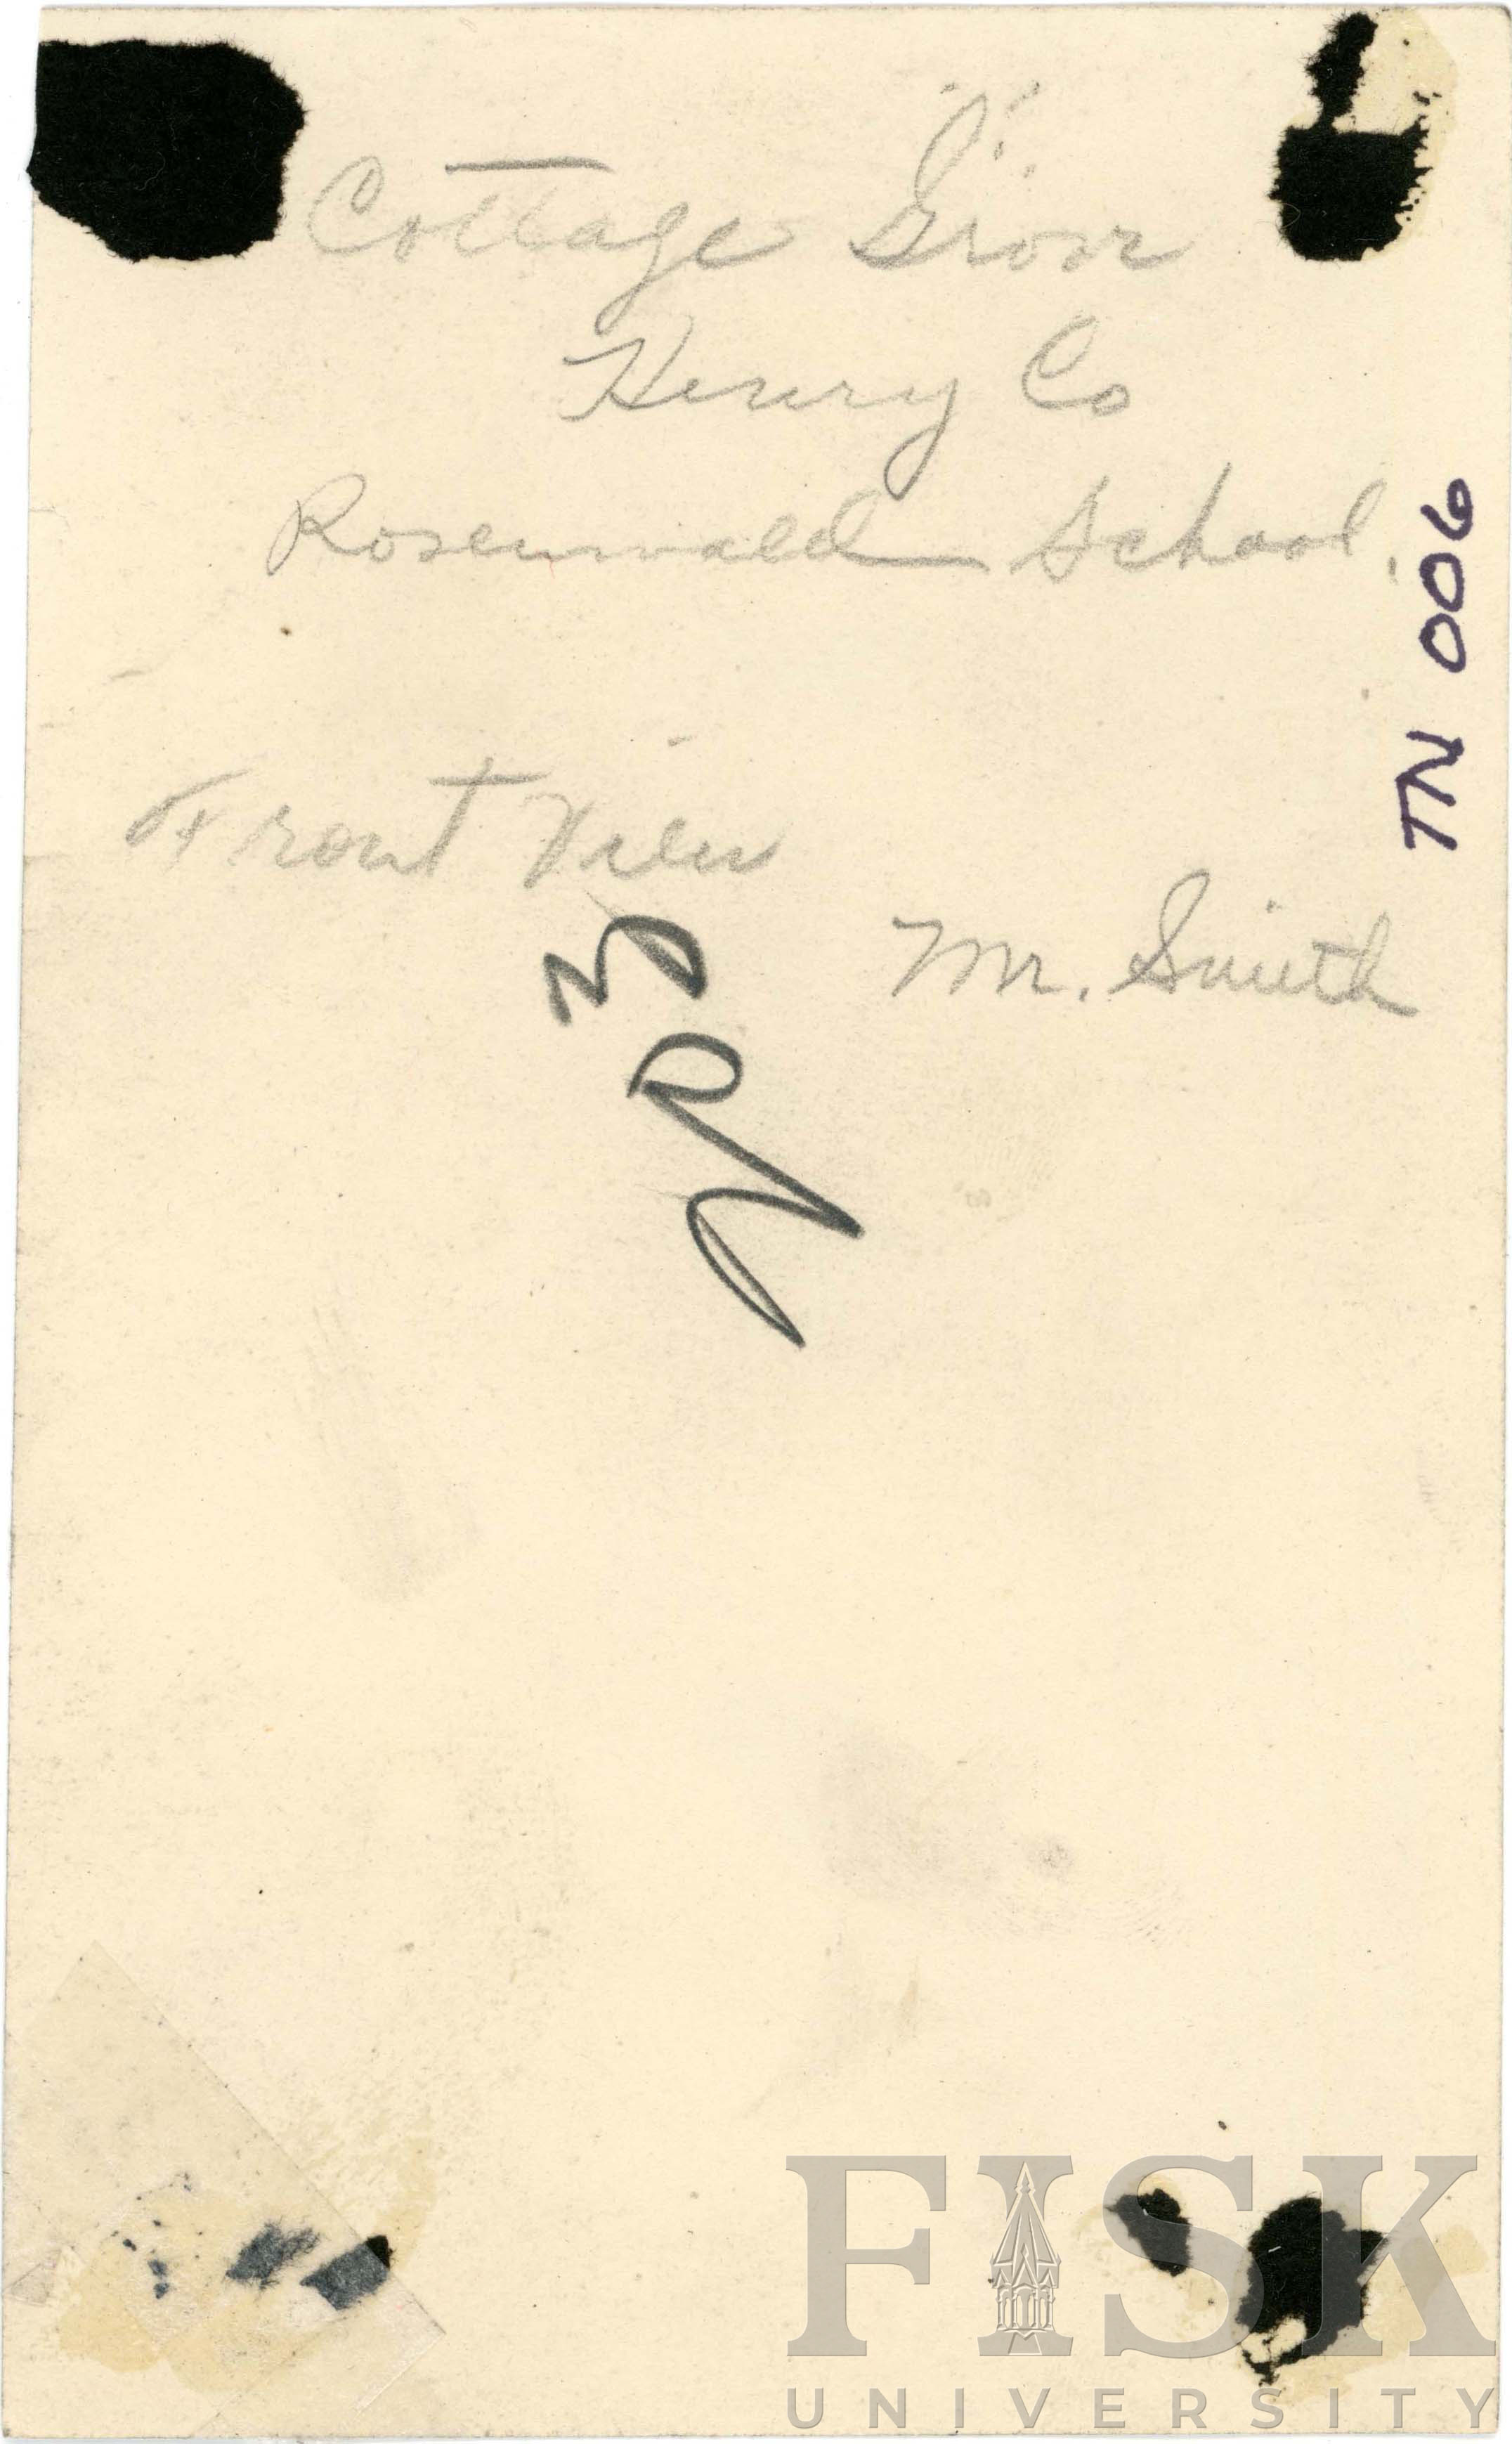 Cottage Grove
Henry Co
Rosenwald School.
TN 006
Front View
Mr. Smith
FISK
UNIVERSITY